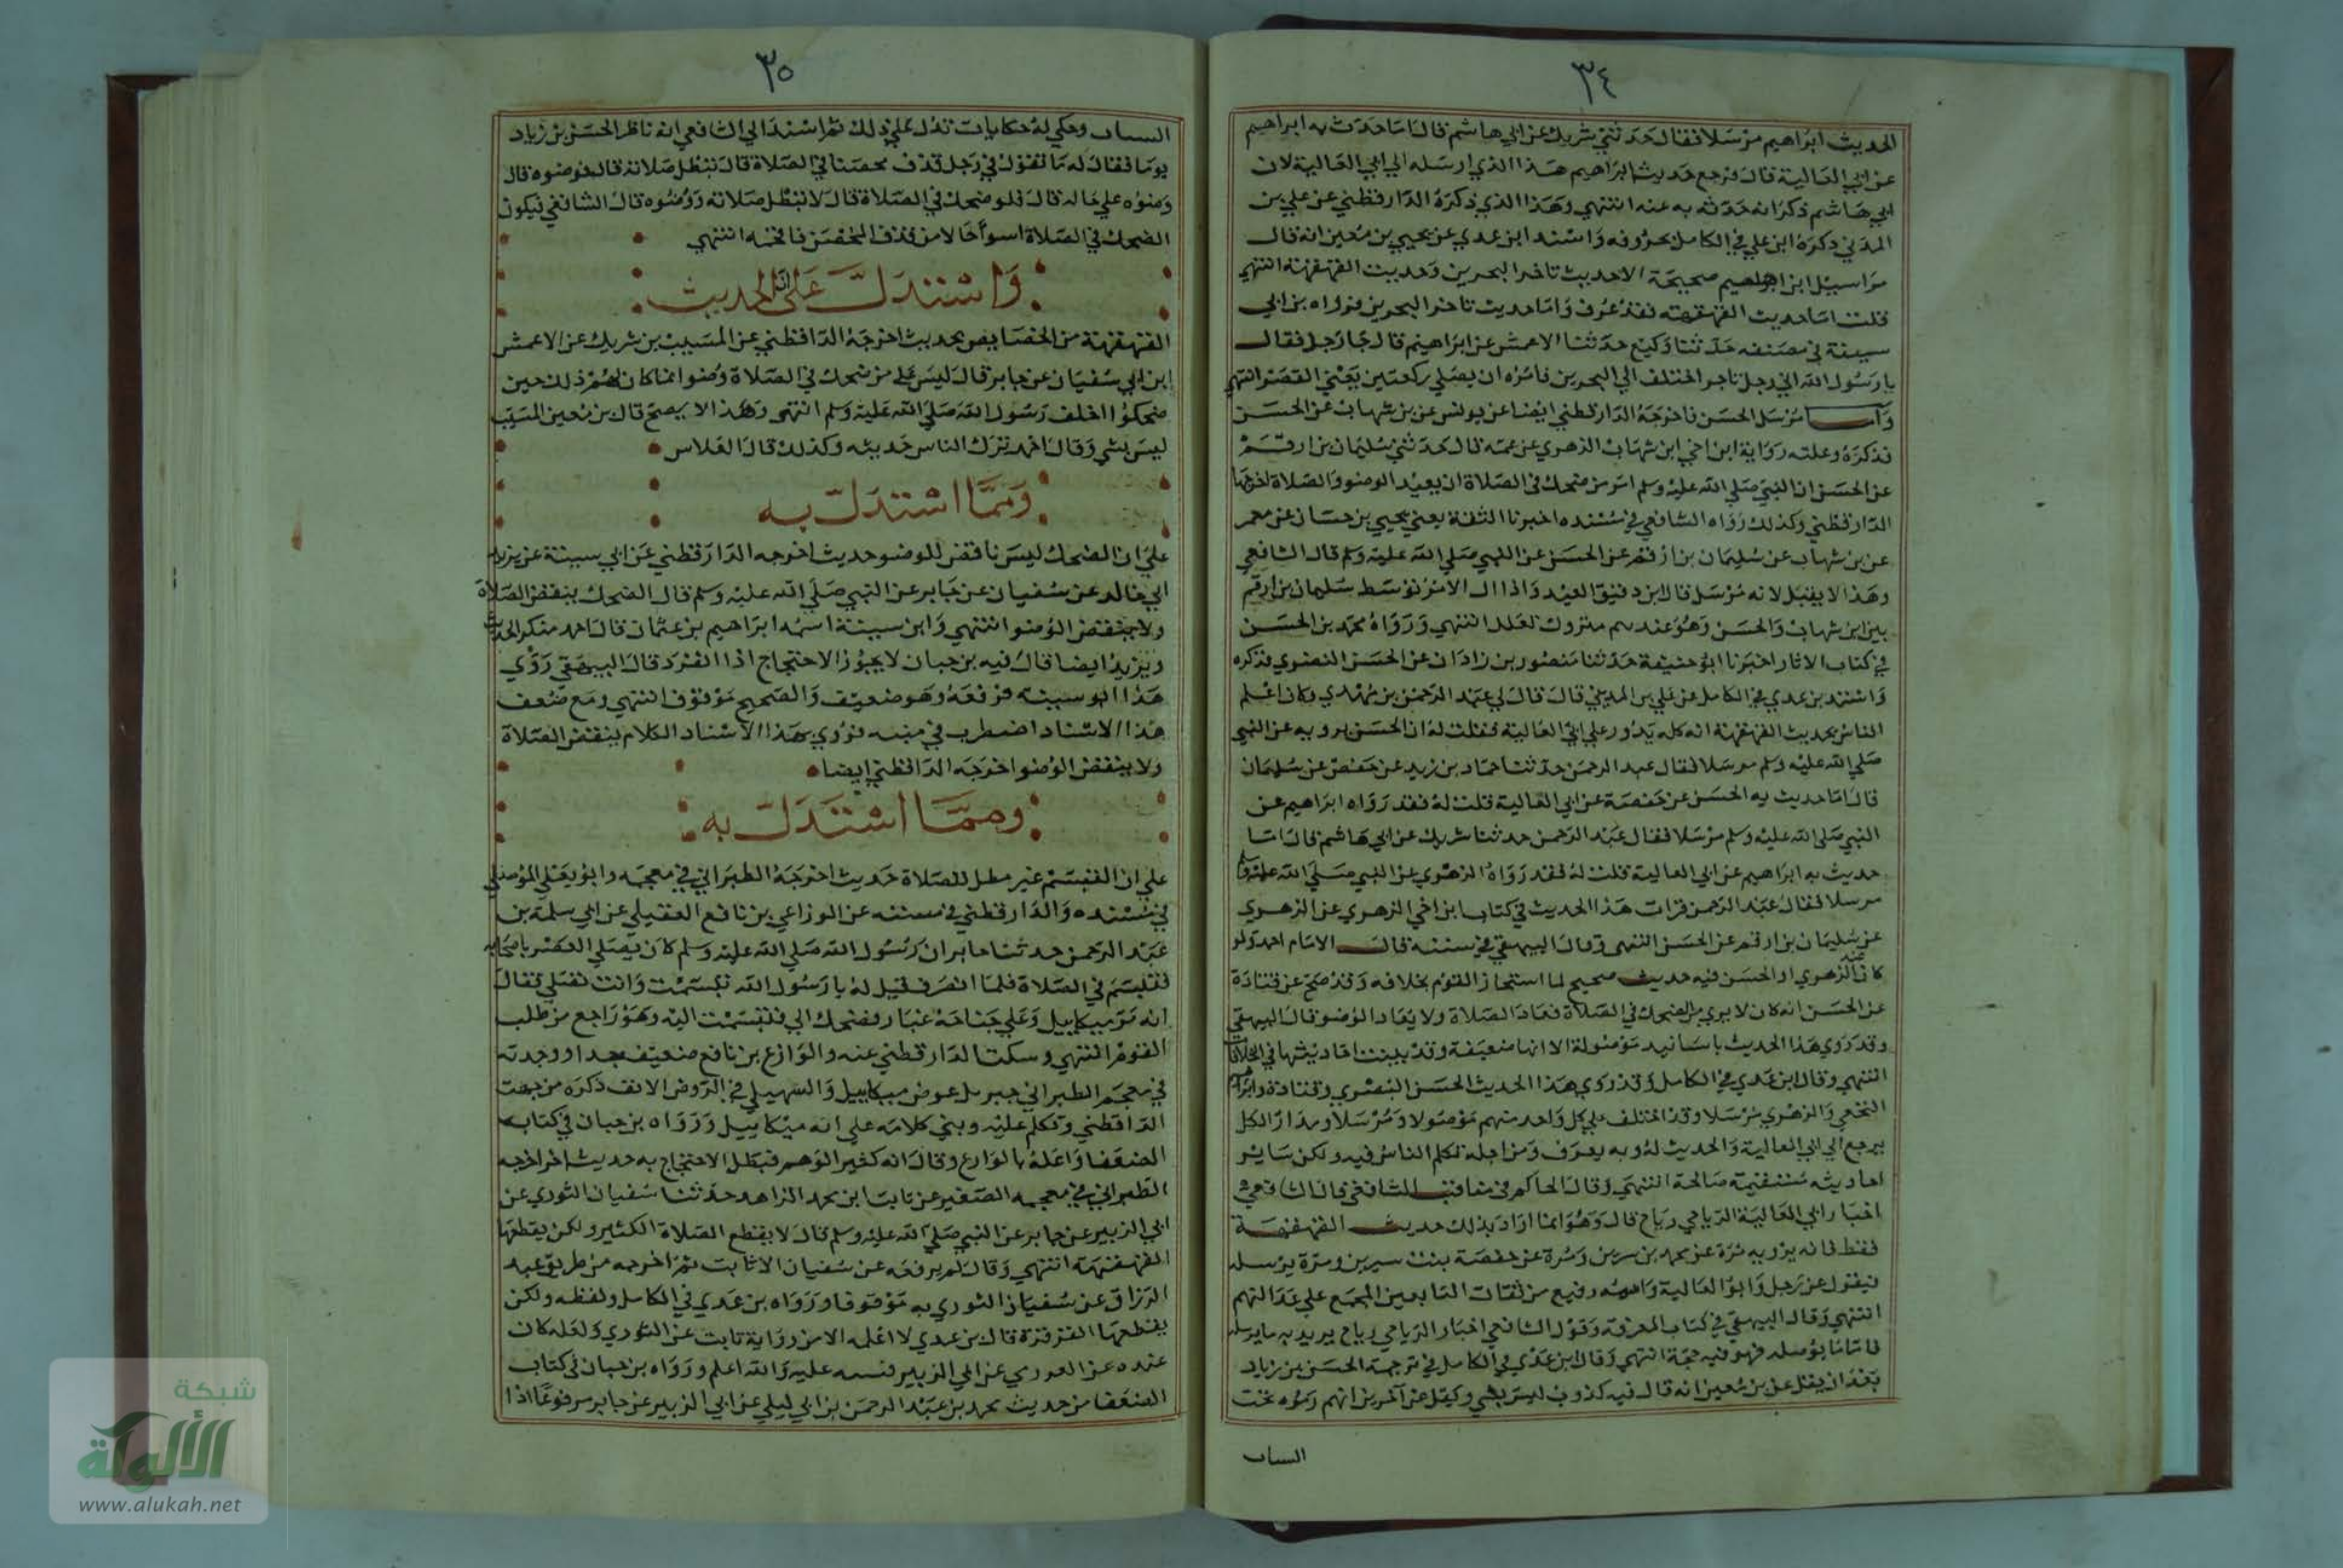 ٣٤
الحديث ابراهيم مرسلا فقال حدثني شريك عن ابي هاشم قال انا حدثت به ابراهيم
عن ابي العالية قال فرجع حديث ابراهيم هذا الذي ارسله الي ابي العالية لان
ابي هاشم ذكر انه حدثه به عنه انتهي وهذا الذي ذكره الدارقطني عن علي بن
المديني ذكره ابن علي في الكامل بحروفه واسند ابن عدي عن يحيي بن معين انه قال
مراسيل ابراهيم صحيحة الا حديث تاخر البحرين وحديث القهقهة انتهي
قلت اما حديث القهقهة فقد عرف واما حديث تاخر البحرين فرواه بن ابي
سيبة في مصنفه حدثنا وكيع حدثنا الاعمش عن ابراهيم قال جا رجل فقال
يا رسول الله اني رجل تاجر اختلف الي البحرين فامره ان يصلي ركعتين يعني القصر انتهي
واما مرسل الحسن فاخرجه الدارقطني ايضا عن يونس عن بن شهاب عن الحسن
فذكره وعلته رواية ابن اخي ابن شهاب الزهري عن عمه قال حدثني سليمان بن ارقم
عن الحسن ان النبي صلي الله عليه وسلم امر من ضحك في الصلاة ان يعيد الوضو والصلاة اخرجها
الدارقطني وكذلك رواه الشافعي في مسنده اخبرنا الثقة يعني يحيي بن حسان عن معمر
عن بن شهاب عن سليمان بن ارقم عن الحسن عن النبي صلي الله عليه وسلم قال الشافعي
وهذا لا يقبل لانه مرسل قال ابن دقيق العيد واذا ال الامر توسط سليمان بن ارقم
بين ابن شهاب والحسن وهو عندهم متروك تعلل انتهي ورواه محمد بن الحسن
في كتاب الاثار اخبرنا ابو حنيفة حدثنا منصور بن زادان عن الحسن البصري فذكره
واسند بن عدي في الكامل عن علي بن المديني قال قال لي عبد الرحمن بن مهدي وكان اعلم
الناس بحديث القهقهة انه كله يدور علي ابي العالية فقلت له ان الحسن يرويه عن النبي
صلي الله عليه وسلم مرسلا فقال عبد الرحمن حدثنا حماد بن زيد عن حفص عن سليمان
قال انا حديث به الحسن عن حفصة عن ابي العالية قلت له فقد رواه ابراهيم عن
النبي صلي الله عليه وسلم مرسلا فقال عبد الرحمن حدثنا شريك عن ابي هاشم قال انا
حديث به ابراهيم عن ابي العالية قلت له فقد رواه الزهري عن النبي صلي الله عليه وسلم
مرسلا فقال عبد الرحمن قرات هذا الحديث في كتاب ابن اخي الزهري عن الزهري
عن سليمان بن ارقم عن الحسن انتهي وقال البيهقي في سننه قال الامام احمد ولو
كان عند الزهري او الحسن فيه حديث صحيح لما استجاز القوم بخلافه وقد صح عن قتادة
عن الحسن انه كان لا يري من الضحك في الصلاة فعاد الصلاة ولا يعاد الوضو قال البيهقي
وقد روي هذا الحديث باسانيد موصولة الا انها ضعيفة وقد بينت احاديثها في الخلافيات
انتهي وقال ابن عدي في الكامل وقد روي هذا الحديث الحسن البصري وقتادة وابراهيم
النخعي والزهري مرسلا وقد اختلف علي كل واحد منهم موصولا ومرسلا ومدار الكل
يرجع الي ابي العالية والحديث له وبه يعرف ومن اجله تكلم الناس فيه ولكن ساير
احاديثه مستقيمة صالحة انتهي وقال الحاكم في مناقب الشافعي قال الشافعي
اخبار ابي العالية الرياحي رياح قال وهو انما اراد بذلك حديث القهقهة
فقط فانه يرويه مرة عن محمد بن سيرين ومرة عن حفصة بنت سيرين ومرة يرسله
فيقول عن رجل وابو العالية واسمه رفيع من ثقات التابعين المجمع علي عدالتهم
انتهي وقال البيهقي في كتاب المعرفة وقول الشافعي اخبار الرياحي رياح يريد به ما يرسله
فاما ما يوصله فهو فيه حجة انتهي وقال ابن عدي في الكامل في ترجمة الحسن بن زياد
بعد ان نقل عن بن معين انه قال فيه كذوب ليس بشي ونقل عن اخرين انهم رموه بحب
الساب
٣٥
الساب وحكي له حكايات تدل علي ذلك ثم اسند الي الشافعي انه ناظر الحسن بن زياد
يوما فقال له ما تقول في رجل قذف محصنا في الصلاة قال تبطل صلاته قال فوضوه قال
وضوه علي حاله قال فلو ضحك في الصلاة قال لا تبطل صلاته ووضوه قال الشافعي فيكون
الضحك في الصلاة اسوأ حالا من قذف المحصن فافحمه انتهي
واستدل علي ان الحديث
القهقهة من الخصايص بحديث اخرجه الدارقطني عن المسيب بن شريك عن الاعمش
ابن ابي سفيان عن جابر قال ليس علي من ضحك في الصلاة وضوا انما كان لهم ذلك حين
ضحكوا خلف رسول الله صلي الله عليه وسلم انتهي وهذا لا يصح قال بن معين المسيب
ليس بشي وقال احمد ترك الناس حديثه وكذلك قال الفلاس
ومما استدل به
علي ان الضحك ليس ناقض للوضو حديث اخرجه الدارقطني عن ابي سيبة عن يزيد
ابي خالد عن سفيان عن جابر عن النبي صلي الله عليه وسلم قال الضحك ينقض الصلاة
ولا ينقض الوضو انتهي وابن سيبة اسمه ابراهيم بن عثمان قال احمد منكر الحديث
ويزيد ايضا قال فيه بن حبان لا يجوز الاحتجاج اذا انفرد قال البيهقي روي
هذا ابو سيبه فرفعه وهو ضعيف والصحيح موقوف انتهي ومع ضعف
هذا الاسناد اضطرب في متنه فروي بهذا الاسناد الكلام ينقض الصلاة
ولا ينقض الوضو اخرجه الدارقطني ايضا
ومما استدل به
علي ان التبسم غير مبطل للصلاة حديث اخرجه الطبراني في معجمه وابو يعلي الموصلي
في مسنده والدارقطني في سننه عن الوزاعي بن نافع العقيلي عن ابي سلمة بن
عبد الرحمن حدثنا جابر ان رسول الله صلي الله عليه وسلم كان يصلي العصر باصحابه
فتبسم في الصلاة فلما انصرف قيل له يا رسول الله تبسمت وانت تصلي فقال
انه مر ميكاييل وعلي جناحه غبار فضحك الي فتبسمت اليه وهو راجع من طلب
القوم انتهي وسكت الدارقطني عنه والوازع بن نافع ضعيف جدا ووجدته
في معجم الطبراني جبريل عوض ميكاييل والسهيلي في الروض الانف ذكره من جهت
الدارقطني وتكلم عليه وبني كلامه علي انه ميكاييل ورواه بن حبان في كتاب
الضعفا واعله بالوازع وقال انه كثير الوهم فبطل الاحتجاج به حديث اخر اخرجه
الطبراني في معجمه الصغير عن ثابت ابن محمد الزاهد حدثنا سفيان الثوري عن
ابي الزبير عن جابر عن النبي صلي الله عليه وسلم قال لا يقطع الصلاة الكثير ولكن يقطعها
القهقهة انتهي وقال لم يرفعه عن سفيان الا ثابت ثم اخرجه من طريق عبد
الرزاق عن سفيان الثوري به موقوفا ورواه بن عدي في الكامل ولفظه ولكن
يقطعها القرقرة قال بن عدي لا اعلمه الا من رواية ثابت عن الثوري ولعله كان
عنده عن العوري عن ابي الزبير فنسه عليه والله اعلم ورواه بن حبان في كتاب
الضعفا من حديث محمد بن عبد الرحمن بن ابي ليلي عن ابي الزبير عن جابر مرفوعا اذا
شبكة
الألوكة
www.alukah.net